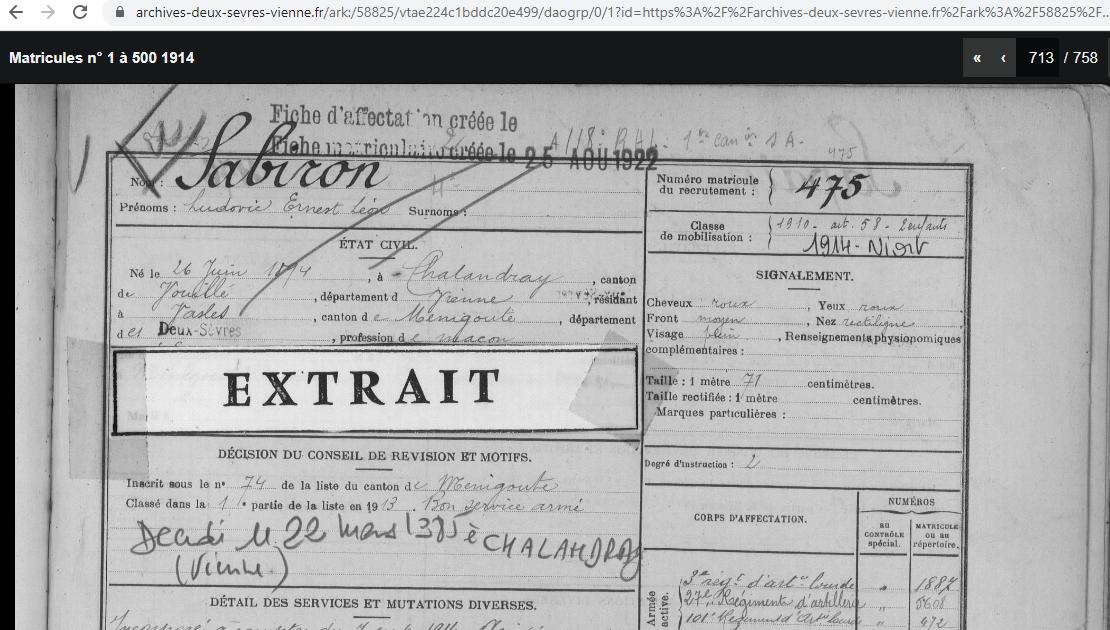 archives-deux-sevres-vienne.fr/ark:/58825/vtae224c1bddc20e499/daogrp/0/1?id=https%3A%2F%2Farchives-deux-sevres-vienne.fr%2Fark%3A%2F58825%2F...
Matricules n° 1 à 500 1914
« ‹ 713 / 758
Fiche d'affectat on créée le
Fiche matriculaire créée le 25 AOU 1922
475
Nom : Sabiron
Prénoms : Ludovic Ernest Léon Surnoms :
Numéro matricule
du recrutement : 475
Classe
de mobilisation :
1910 - art. 58 - 2 enfants
1914 - Niort
ÉTAT CIVIL.
Né le 26 Juin 1894, à Chalandray, canton
de Vouillé, département d Vienne, résidant
à Vasles, canton de Ménigoute, département
des Deux-Sèvres, profession de maçon
EXTRAIT
SIGNALEMENT.
Cheveux roux Yeux roux
Front moyen, Nez rectiligne
Visage plein, Renseignements physionomiques
complémentaires :
Taille : 1 mètre 71 centimètres.
Taille rectifiée : 1 mètre centimètres.
Marques particulières :
Degré d'instruction : 2
DÉCISION DU CONSEIL DE REVISION ET MOTIFS.
Inscrit sous le n° 74 de la liste du canton de Ménigoute
Classé dans la 1re partie de la liste en 1913. Bon service armé
22 mars 1385 à CHALANDRAY
(Vienne.)
DÉTAIL DES SERVICES ET MUTATIONS DIVERSES.
CORPS D'AFFECTATION.
NUMÉROS
AU
CONTRÔLE
spécial.
MATRICULE
ou au
répertoire.
Armée
active.
3e régt. d'artie lourde " 1887
27e Régiment d'artillerie " 5608
101e Régiment d'Artie Lourde " 472